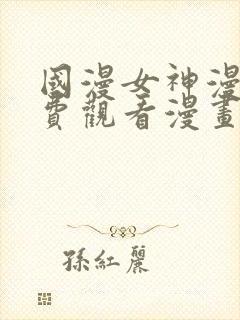 國漫女神漫
費觀看漫畫
孫紅麗